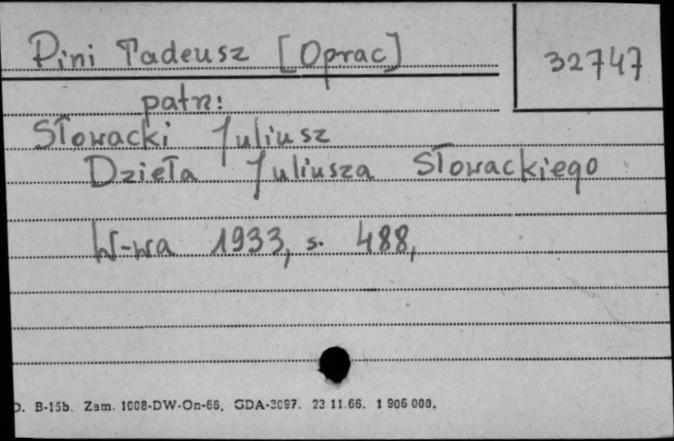 Pini Tadeusz [Oprac]
32747
patrz:
Słowacki Juliusz
Dzieła Juliusza Słowackiego
W-wa 1933, s. 488,
D. B-15b. Zam. 1008-DW-On-66. GDA-2097. 23 11.66. 1 906 000.